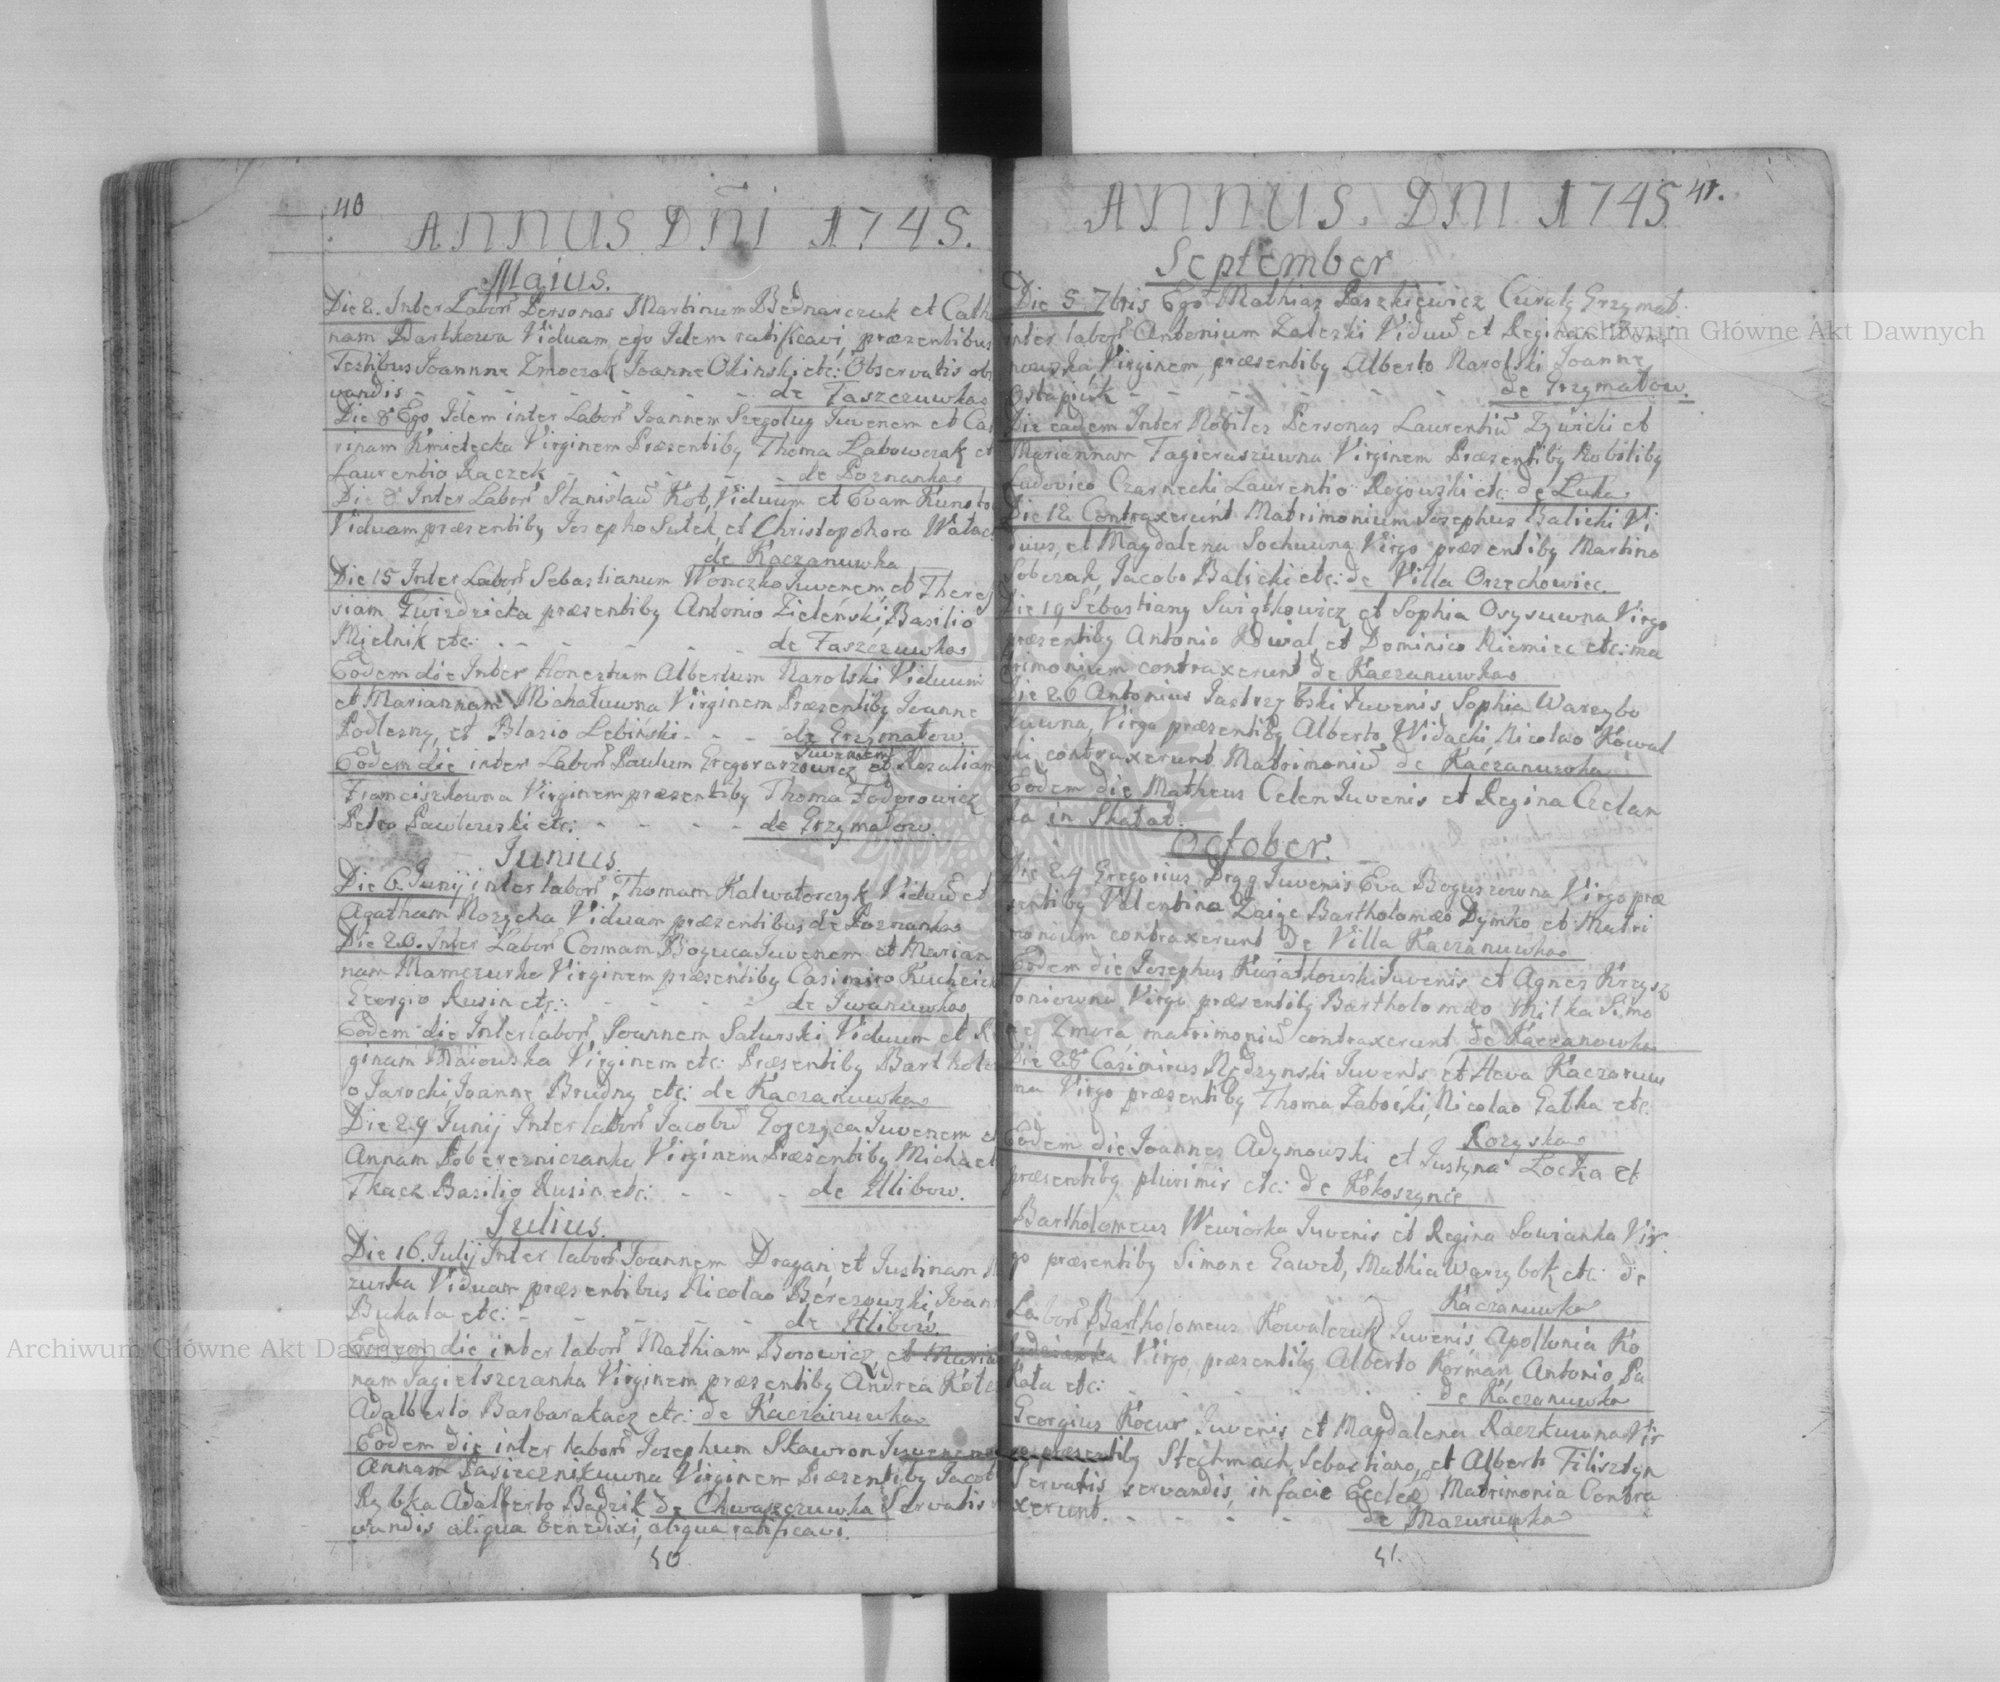 40
ANNUS DÑI 1745.
Maius.
Die 2. Inter Labor Personas Martinum Bednarczuk et Cath
nam Bartkowa Viduam ego Idem ratificavi præzentibus
Testibus Joannne Zmoczak Joanne Okinski etc: Observatis ob
vandis - - - - - - de Faszczuwka
Die 8 Ego Idem inter Labor Joannem Szegoług Juvenem et Ca
rinam Kmietecka Virginem Præsentiby Thoma Labowczak et
Laurentio Raczek - - - - - de Poznanka
Die 8 Inter Labor Stanislaū Kot, Viduum et Evam
Viduam præsentiby Josepho Sułek, et Christopohora
de Kaczanuwka
Die 15 Inter Labor Sebastianum Wonczko Juvenem, et There
siam Gwizdzicka præsentiby Antonio Zielenski, Basilio
Mielnik etc: - - - - - de Faszczuwka
Eodem die Inter Honestum Albertum Narolski Viduum
et Mariannam Michałuwna Virginem Præsentiby Joanne
Podlezny, et Blasio Lebiński - - - de Grzymałow
Juvenem
Eodem die inter Labor Paulum Gregorarzowicz et Rozaliam
Franciszkowna Virginem præsentiby Thoma Fedorowicz
Petro Pawłowski etc: - - - - de Grzymałow.
Junius.
Die 6. Junij inter labor Thomam Kalwatorczyk Viduū et
Agatham Nozycha Viduam præzentibus de Poznanka
Die 20. Inter Labor Cozmam Boguca Juvenem et Marian
nam Mamczurka Virginem præsentiby Casimiro
Georgio Rusin etc: - - - - - de Iwanuwka
Eodem die Inter labor Joannem Saturski Viduum et R
ginam Maiowska Virginem etc: Præsentiby Barthole
o Jarocki, Joanne Brudny etc: de Kaczanuwka
Die 29 Junij Inter labor Jacobū Gorczyca Juvenem et
Annam Pobereżniczanka Virginem Præsentiby Michael
Tkacz Basilio Rusin etc: - - - de Hlibow.
Julius.
Die 16. Julij Inter labor Joannem Dragan et Justinam
zurka Viduam præsentibus Nicolao Berezowski Joan
Bukata etc: - - - - - - de Hlibow.
Eodem die inter labor Mathiam Borowicz, et Marian
nam Jagielszczanka Virginem præsentiby Andrea
Adalberto Barbarakacz etc: de Kaczanuwka
Eodem die inter labor Josephum Skawron Juvenem
Annam Pasiecznikuwna Virginem Præsentiby Jacob
Rybka Adalberto Badzik de Chwaszczuwka Servatis
vandis aliqua benedixi, aliqua ratificavi.
40
ANNUS. DNI 1745 41.
September
Die 5 7bris Ego Mathias Paszkiewicz Curatg Grzymał.
inter labor Antonium Zaleski Viduū et Reginam
nowska Virginem, præsentiby Alberto Narolski Joanne
Ostapiuk - - - - - - de Grzymałow.
Die eadem Inter Nobiles Personas Laurentiū Zywicki et
Mariannam Jagieraszuwna Virginem Præsentiby Nobiliby
Ludovico Czarnecki Laurentio Rogowski etc: de Luka
Die 12 Contraxerunt Matrimonium Josephus Balicki Vi
duus, et Magdalena Sochuwna Virgo præsentiby Martino
Sobczak, Jacobo Balicki etc: de Villa Orzechowiec.
Die 19 Sebastiany Swiątkowicz et Sophia Osysuwna Virgo
præsentiby Antonio et Dominico Niemiec etc: ma
trimonium contraxerunt de Kaczanuwka
Die 26 Antonius Jastrzębski Juvenis, Sophia Warzybo
kuwna, Virgo præsentiby Alberto Widacki, Nicolao Kowal
ski, contraxerunt Matrimoniū de Kaczanuwka
Eodem die Matheus Celen Juvenis et Regina Czelan
ka in Skałat.
October.
Die 24 Gregorius Juvenis Eva Boguszowna Virgo præ
sentiby Valentino Zaige Bartholomæo Dymko, et Matri
monium contraxerunt de Villa Kaczanuwka
Eodem die Josephus Kwiatkowski Juvenis et Agnes Krzysz
toniowna Virgo præsentiby Bartholomæo Mitka Simo
ne Zmora, matrimoniū contraxerunt de Kaczanowka
Die 28 Casimirus Nędzynski Juvenis, et Heva Kaczoruw
na Virgo præsentiby Thoma Zaboiski, Nicolao Gałka etc:
Rozyska
Eodem die Joannes Adymowski et Justyna Łocka et
præsentiby plurimis etc: de Kokoszynce
Bartholomeus Wewiorka Juvenis et Regina Sowianka Vir.
go præsentiby Simone Gaweł, Mathia Warzybok, etc: de
Kaczanuwka
Labor Bartholomeus Kowalczuk Juvenis Apollonia Ko
Virgo, præsentiby Alberto Korman, Antonio, Pa
kota etc: - - - - - - de Kaczanuwka
Georgius Kocur, Juvenis et Magdalena Raczkuwna Vir
go præsentiby Stechmach, Sebastiano, et Alberto Filisztyn
Servatis servandis, in facie Ecclæ Matrimonia Contra
xerunt. - - - - de Mazuruwka
41.
Archiwum Główne Akt Dawnych
Archiwum Główne Akt Dawnych